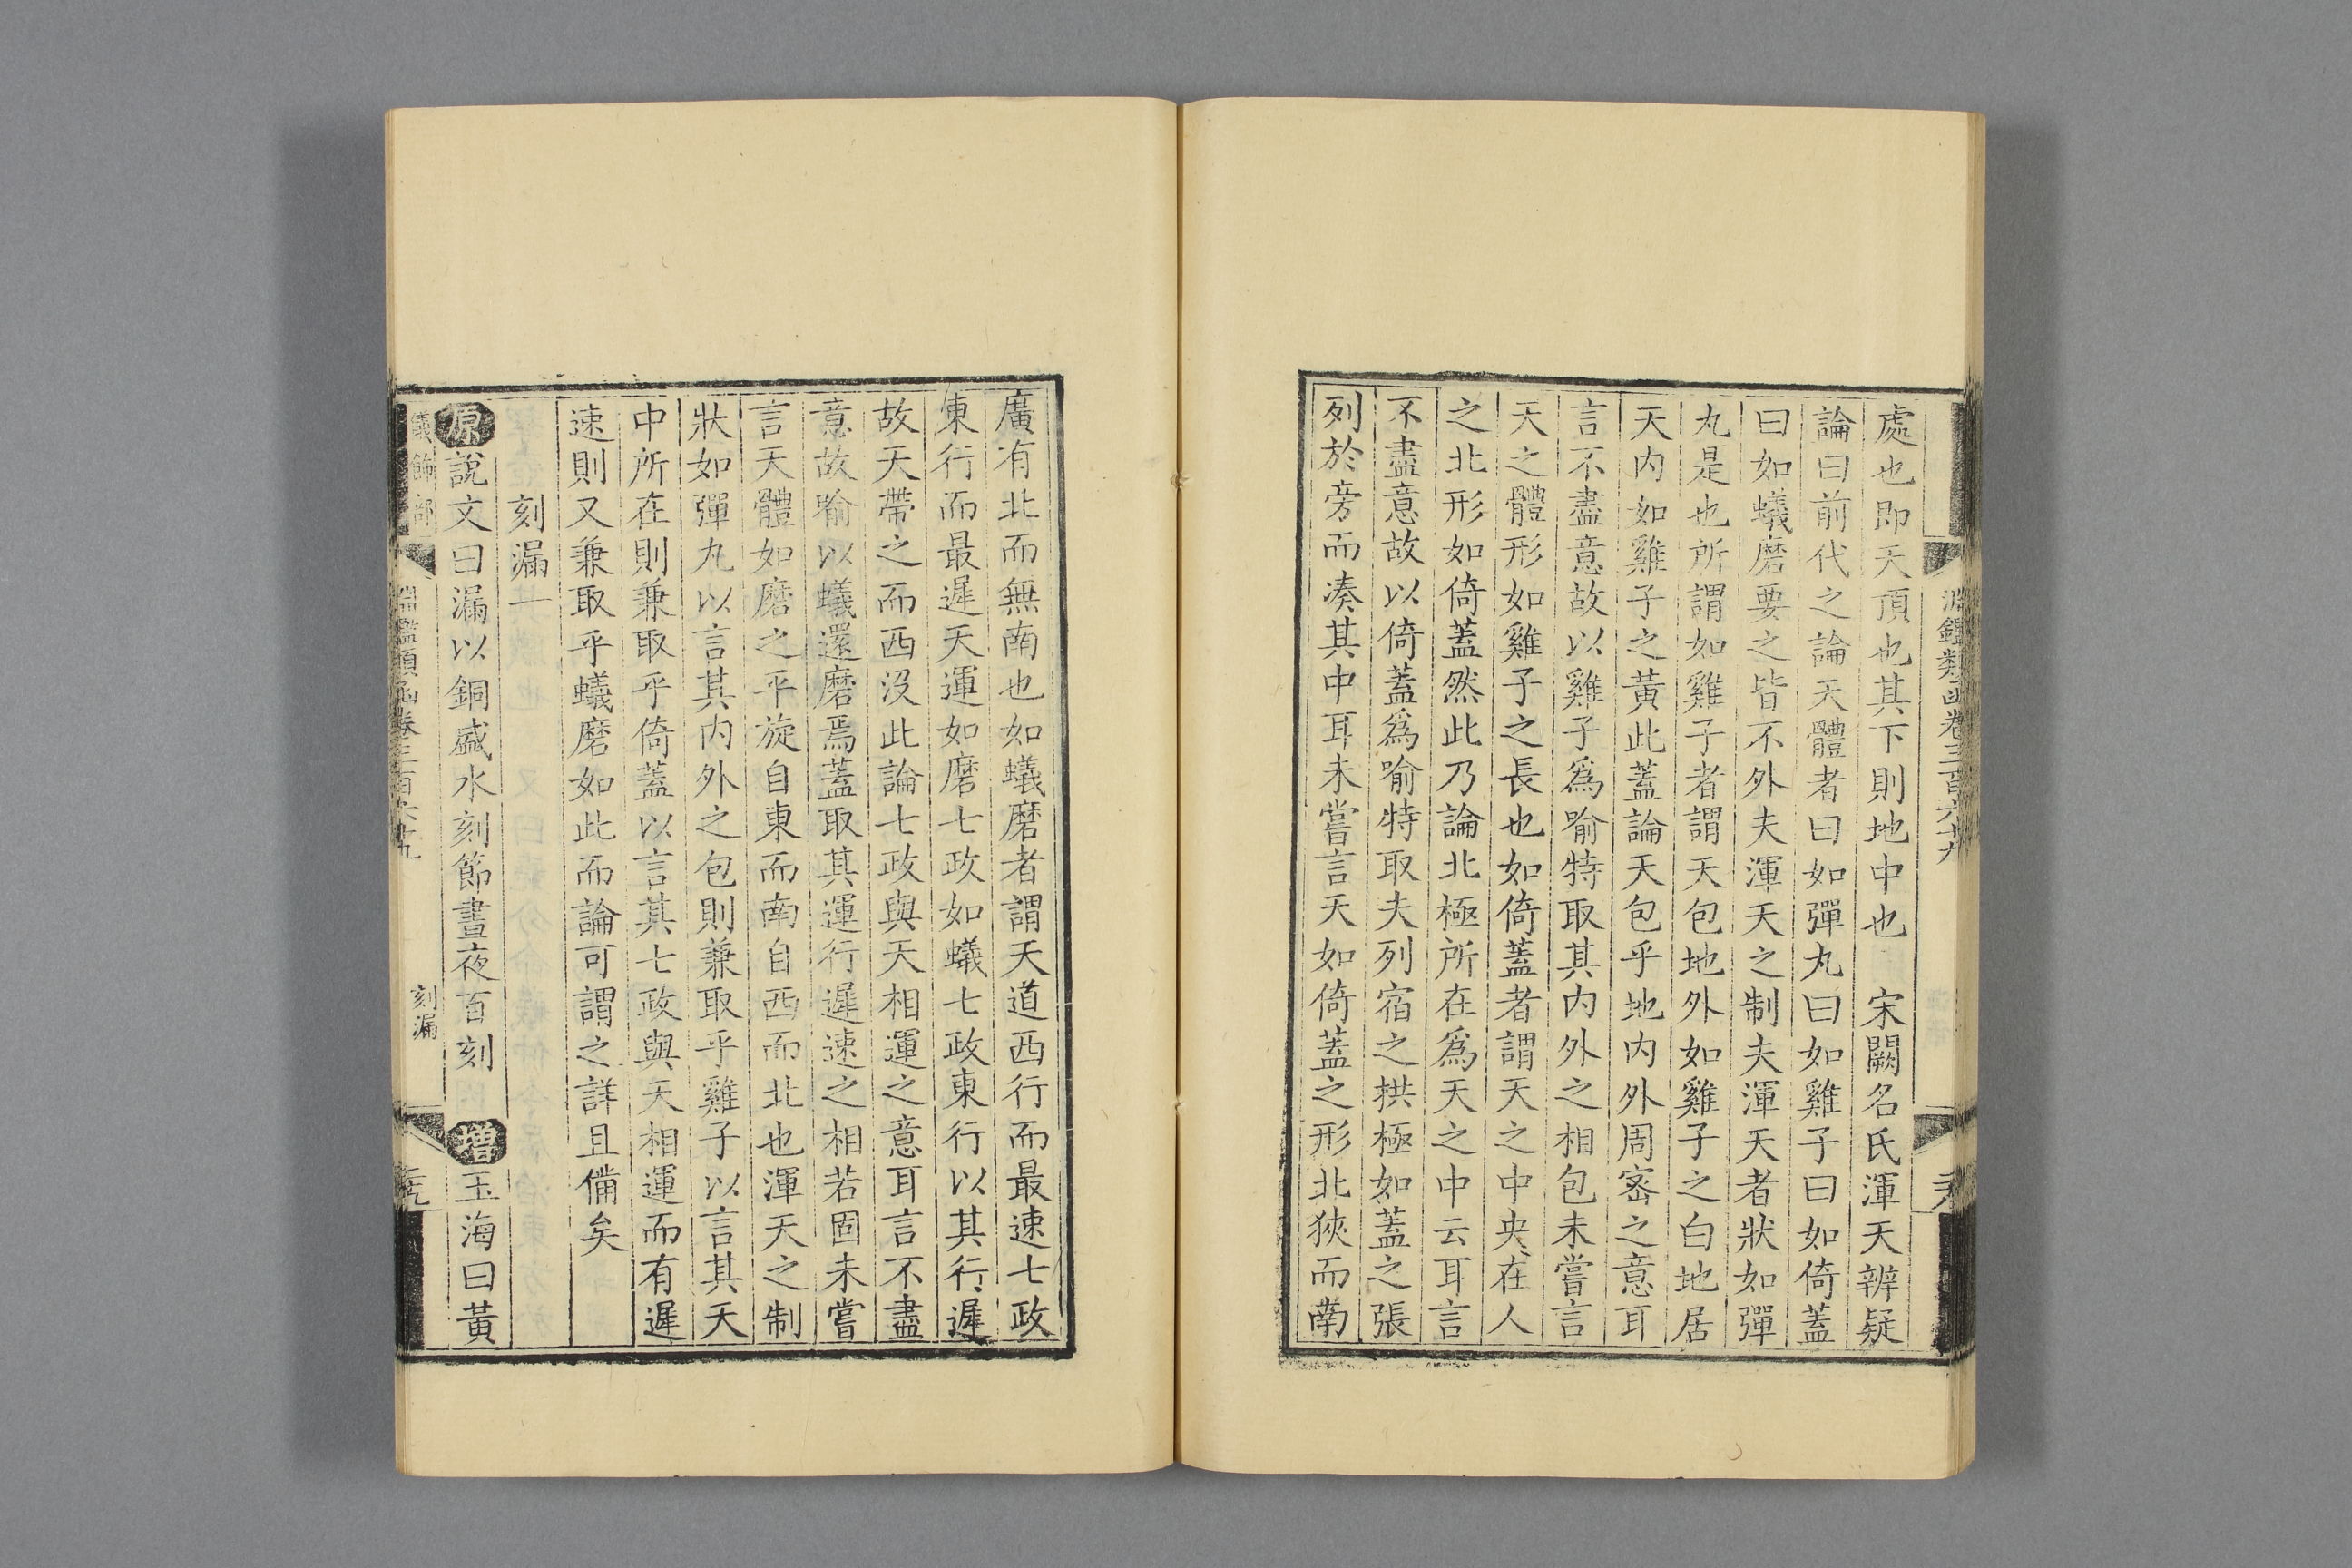 淵鑑類函卷三百六十九
處也即天頂也其下則地中也 宋闕名氏渾天辨疑
論曰前代之論天體者曰如彈丸曰如雞子曰如倚蓋
曰如蟻磨要之皆不外夫渾天之制夫渾天者狀如彈
丸是也所謂如雞子者謂天包地外如雞子之白地居
天内如雞子之黃此蓋論天包乎地内外周宻之意耳
言不盡意故以雞子爲喻特取其内外之相包未嘗言
天之體形如雞子之長也如倚蓋者謂天之中央在人
之北形如倚蓋然此乃論北極所在爲天之中云耳言
不盡意故以倚蓋爲喻特取夫列宿之拱極如蓋之張
列於旁而凑其中耳未嘗言天如倚蓋之形北狹而南
廣有北而無南也如蟻磨者謂天道西行而最速七政
東行而最遲天運如磨七政如蟻七政東行以其行遲
故天帶之而西沒此論七政與天相運之意耳言不盡
意故喻以蟻還磨焉蓋取其運行遲速之相若固未嘗
言天體如磨之平旋自東而南自西而北也渾天之制
狀如彈丸以言其内外之包則兼取乎雞子以言其天
中所在則兼取乎倚蓋以言其七政與天相運而有遲
速則又兼取乎蟻磨如此而論可謂之詳且備矣
刻漏一
原說文曰漏以銅盛水刻節晝夜百刻 增玉海曰黃
儀飾部 淵鑑類函卷三百六十九 刻漏